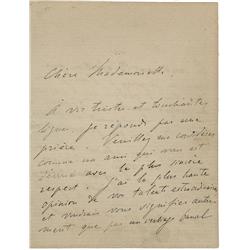 Chère Mademoiselle,
À vos tristes et touchantes
lignes, je réponds par une
prière. Veuillez me considérer
comme un ami qui vous est
dévoué avec le plus sincère
respect. J'ai la plus haute
opinion de votre talent extraordinaire
et voudrais vous signifier autre-
ment que par un éloge banal